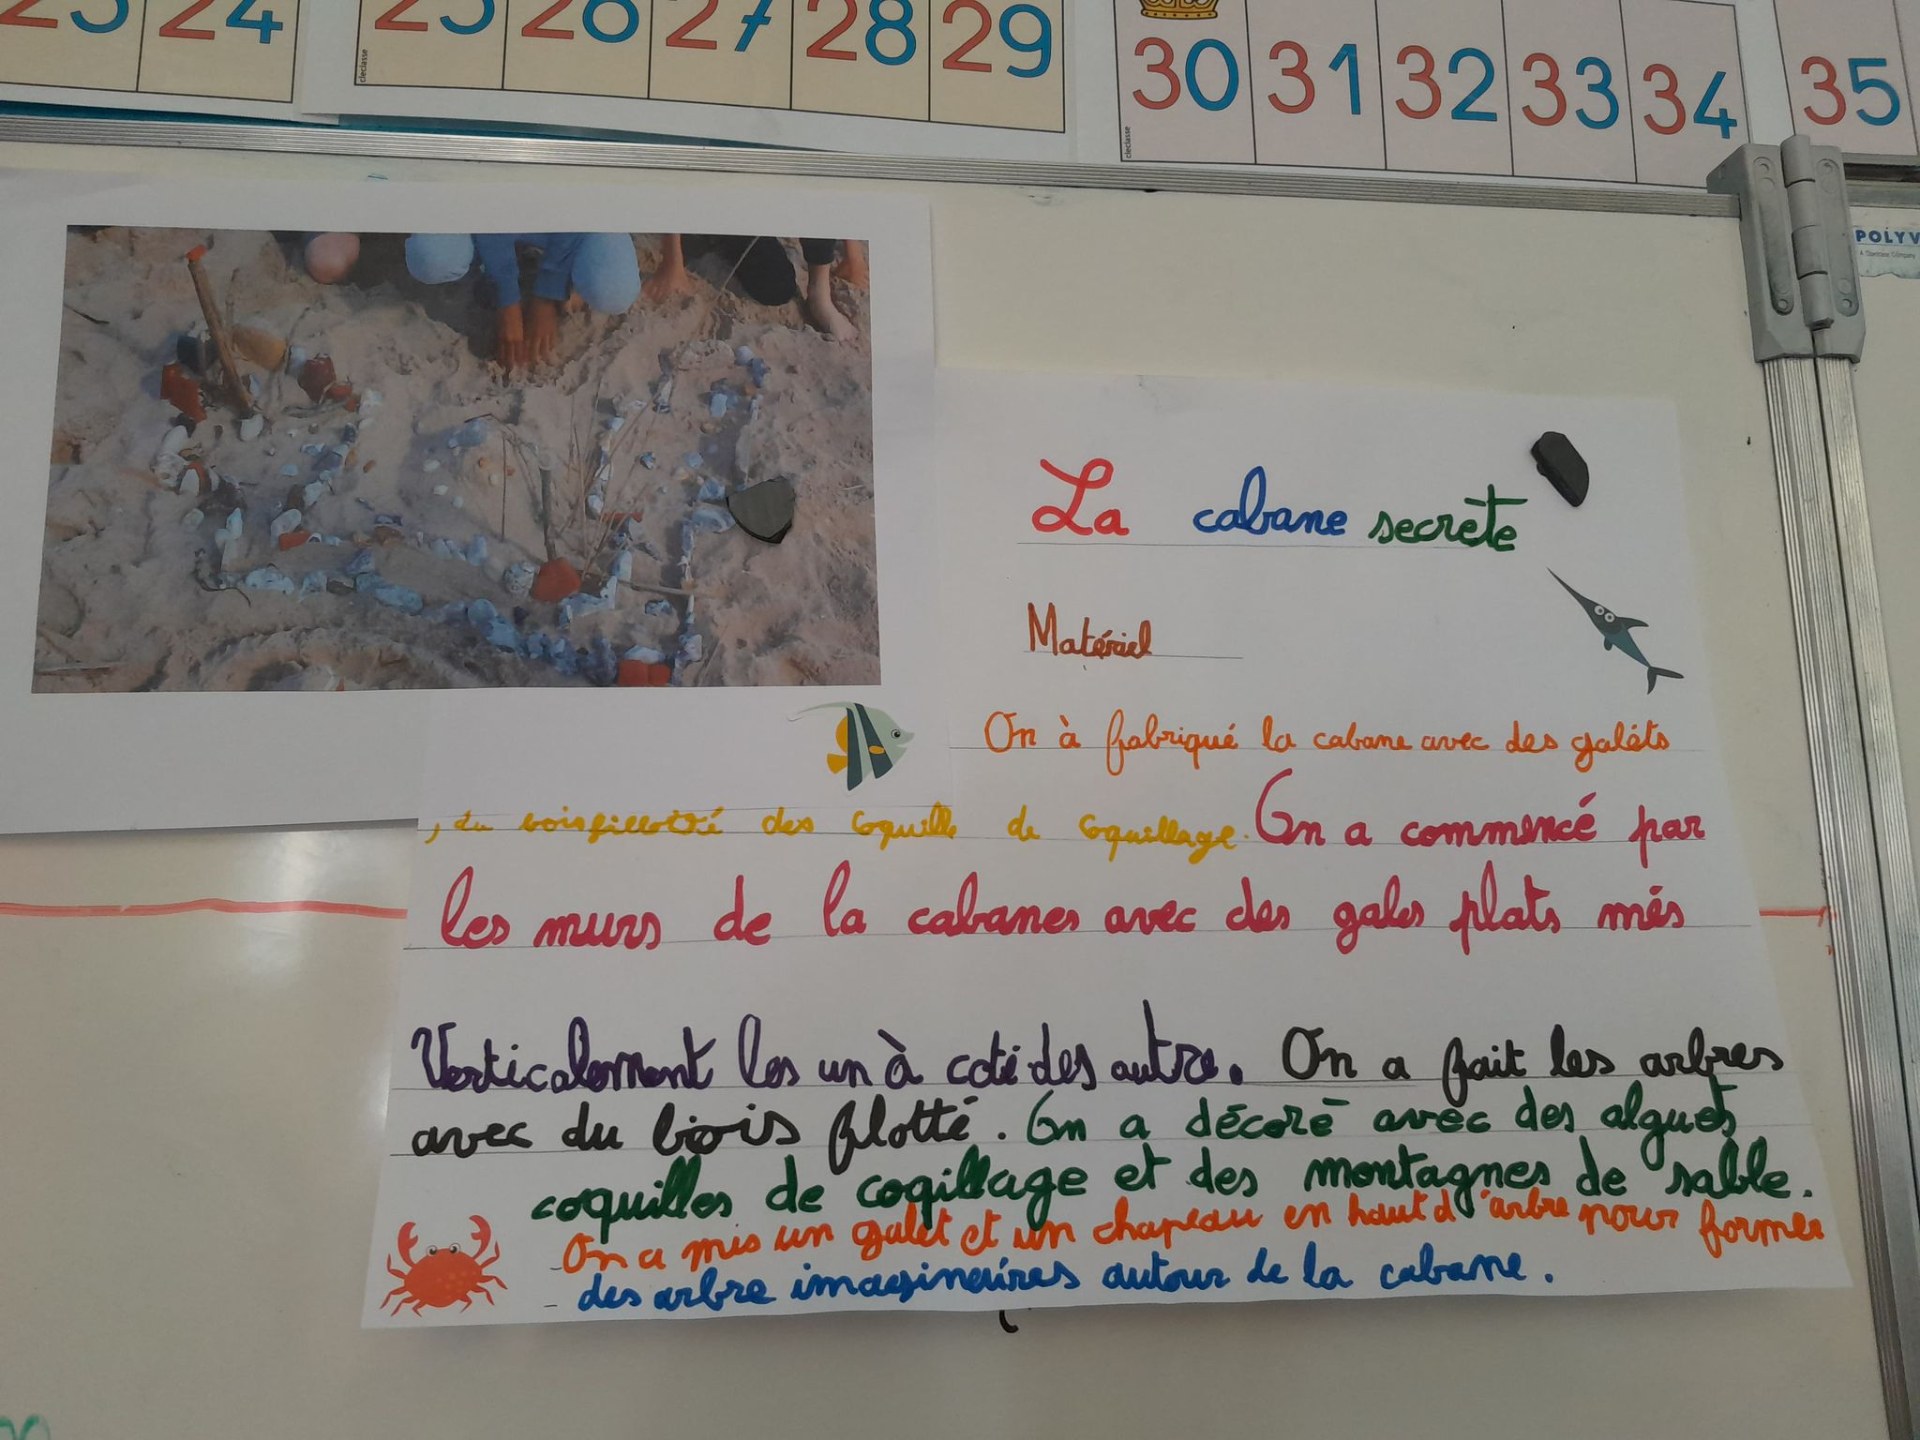 23 24 25 26 27 28 29 30 31 32 33 34 35
cleclasse
cleclasse
POLYV
La cabane secrète
Matériel
On à fabriqué la cabane avec des galéts
, du des coquille de coquillage. On a commencé par
les murs de la cabanes avec des gales plats més
Verticalement les un à coté des autre. On a fait les arbres
avec du bois flotté. On a décoré avec des algues
coquilles de coqillage et des montagnes de sable.
On a mis un galet et un chapeau en haut d'arbre pour former
des arbre imaginaires autour de la cabane.